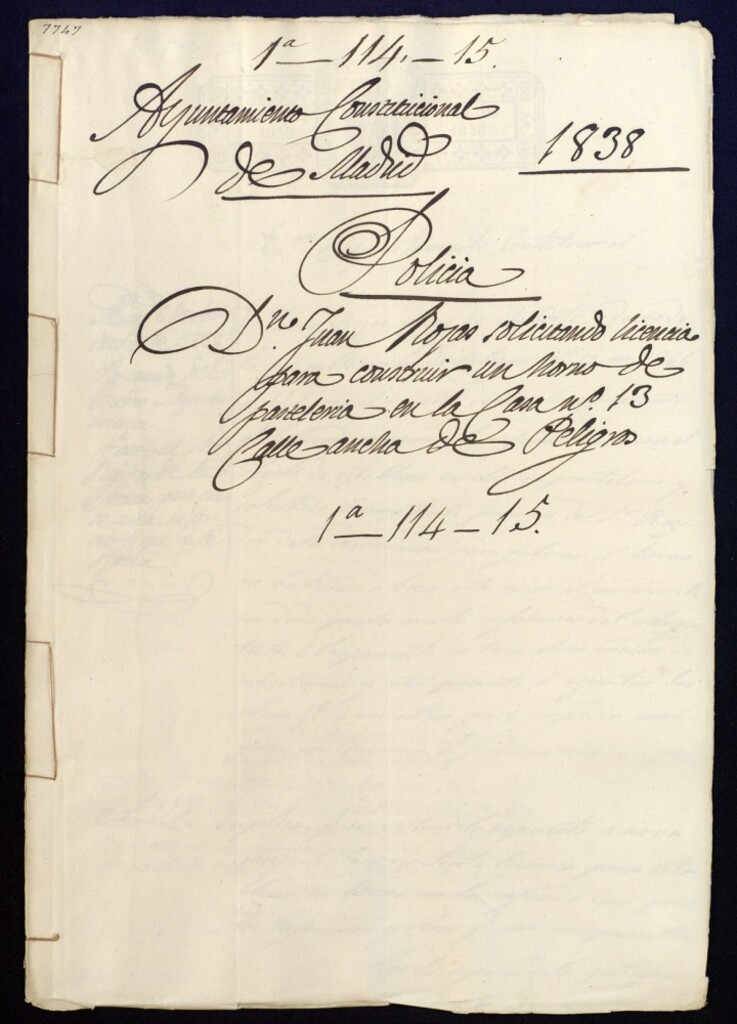 7747
1ª — 114. — 15.
Ayuntamiento Constitucional
de Madrid
1838
Policia
Dn. Juan Rojas solicitando licencia
para construir un horno de
pasteleria en la Casa nº. 13
Calle ancha de Peligros
1ª — 114 — 15.